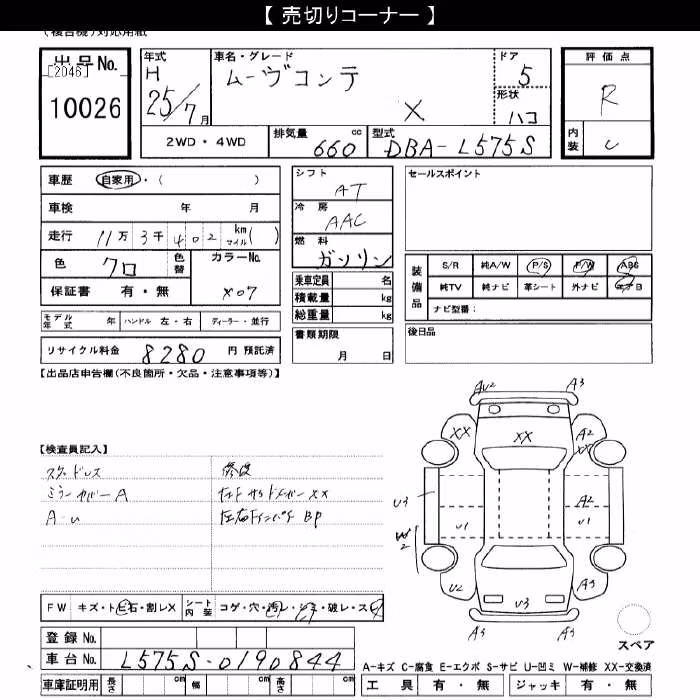 【 売切りコーナー 】
(複合機)対応用紙
出品No. [2046] 10026
年式 H 25/7月
車名・グレード ムーヴコンテ X
ドア 5
形状 ハコ
評価点 R
内装 C
2WD・4WD
排気量 660 cc
型式 DBA-L575S
車歴 自家用・( )
車検 年 月
走行 11万3千402 km マイル( )
色 クロ 色替
カラーNo. X07
保証書 有・無
シフト AT
冷房 AAC
燃料 ガソリン
乗車定員 名
積載量 kg
総重量 kg
書類期限 月 日
セールスポイント
装備品 S/R 純A/W P/S P/W ABS
純TV 純ナビ 革シート 外ナビ
ナビ型番:
後日品
モデル年式 年 ハンドル 左・右 ディーラー・並行
リサイクル料金 8280 円 預託済
【出品店申告欄(不良箇所・欠品・注意事項等)】
【検査員記入】
スタッドレス 修復
ミラーカバー A
A-U
AU2 A3
XX XX A2
XX
U3 A2
U1 U1
W2
U2 U3 A3
A3 A3
FW キズ・トビ石・割レX シート内装 コゲ・穴・汚レ・シミ・破レ・スレ
スペア
登録No.
車台No. L575S-0190844
A-キズ C-腐食 E-エクボ S-サビ U-凹ミ W-補修 XX-交換済
車庫証明用 長さ cm 幅 cm 高さ cm
工具 有・無 ジャッキ 有・無